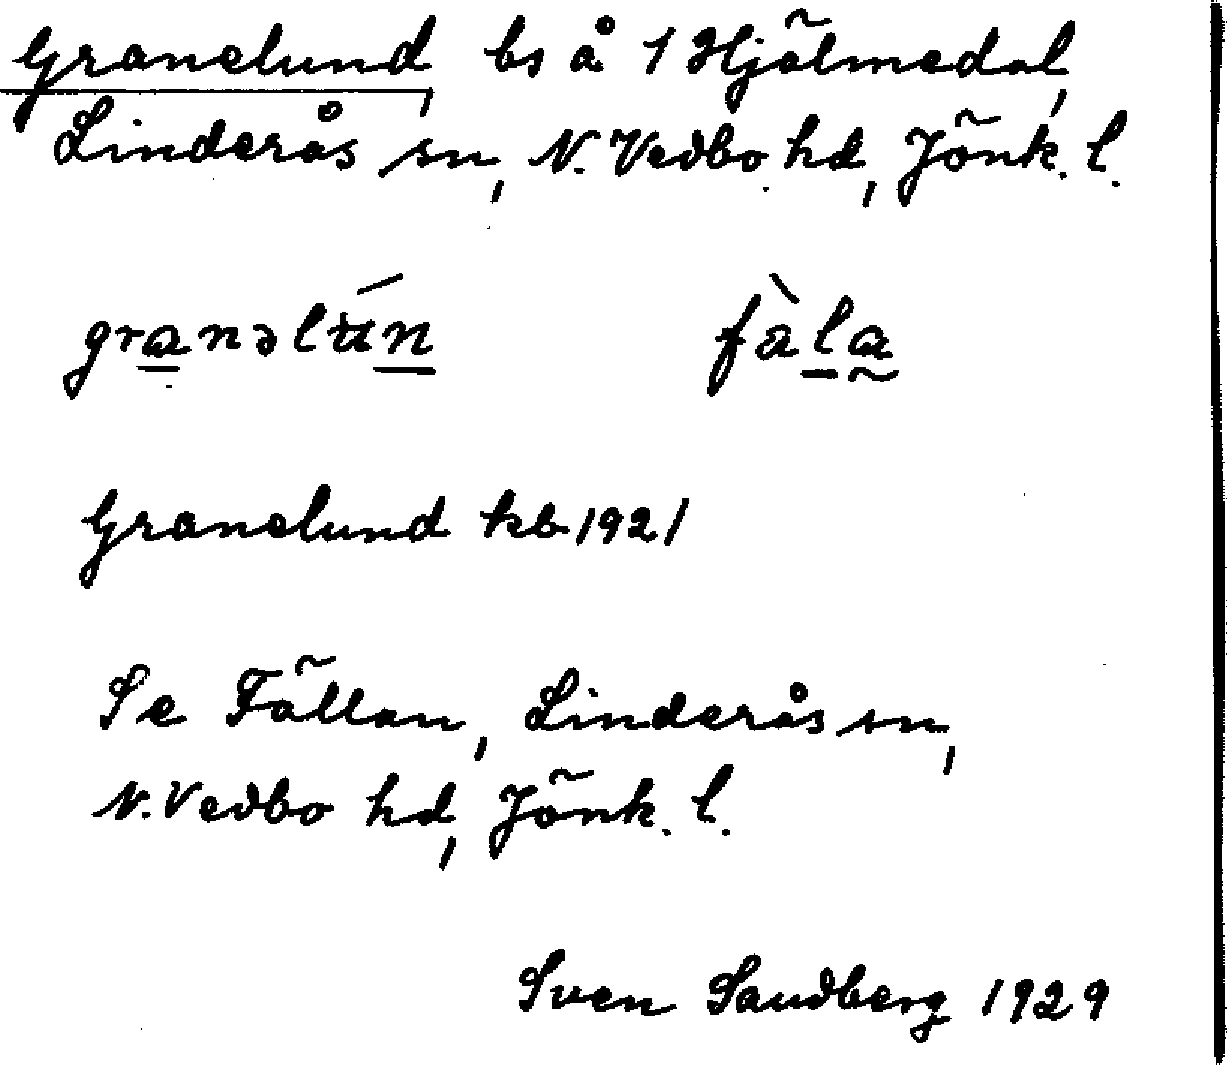 Granelund, bs å 1 Hjälmedal,
Linderås sn, N. Vedbo hd, Jönk. l.
granəlún fàla
Granelund kb 1921
Se Fällan, Linderås sn,
N. Vedbo hd, Jönk. l.
Sven Sandberg 1929